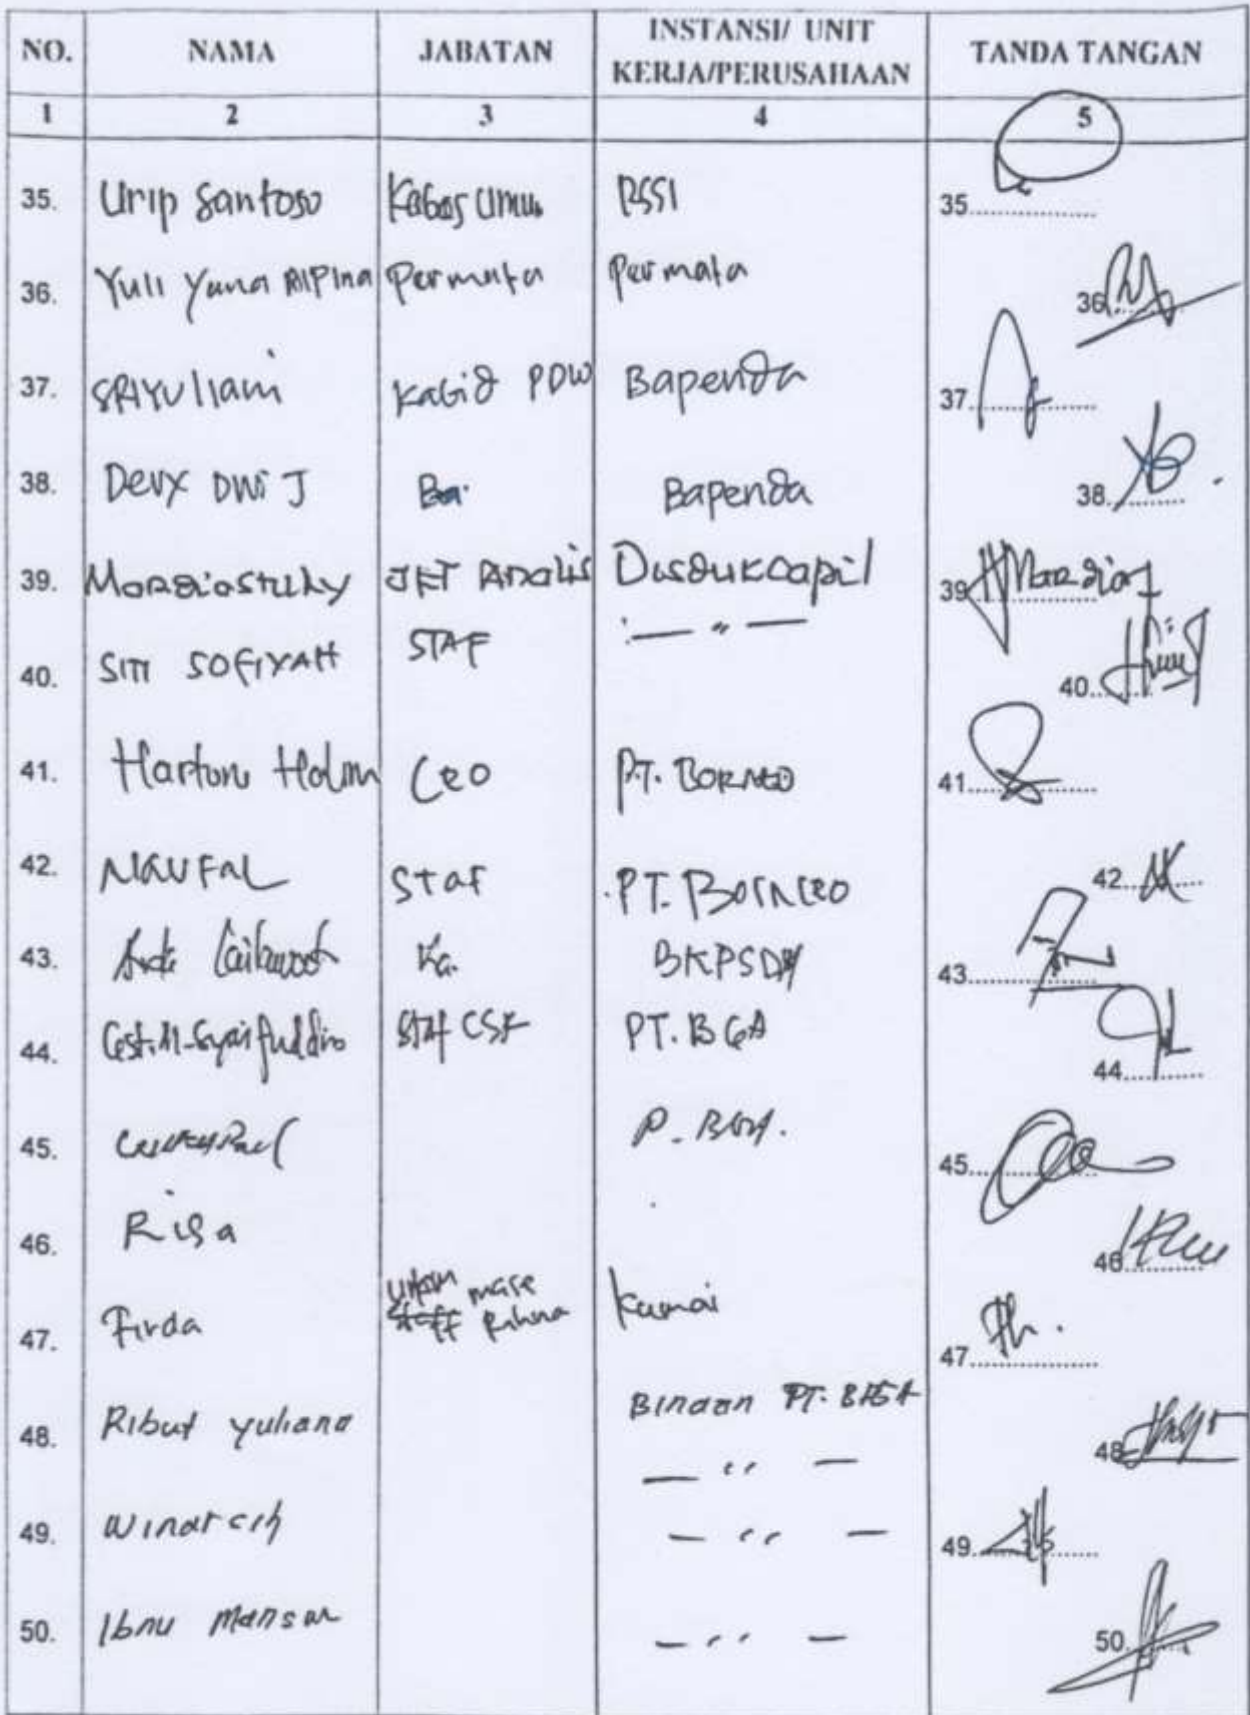 NO. NAMA JABATAN INSTANSI/ UNIT KERJA/PERUSAHAAN TANDA TANGAN
1 2 3 4 5
35. Urip Santoso Kabag Umum RSSI 35
36. Yuli Yana RIPIna Permata Permata 36
37. SRIYUliani Kabid PDW Bapenda 37
38. Devy DWi J Ba. Bapenda 38
39. Mardiastuty JFT Analis Disdukcapil 39
40. SITI SOFIYAH STAF — " — 40
41. Hartono Ceo PT. BORNEO 41
42. NAUFAL Staf PT. Borneo 42
43. Ka. BKPSDM 43
44. Syaifuddin Staf CSR PT. BGA 44
45. 45
46. Risa 46
47. Firda Kumai 47
48. Ribut yuliana Binaan PT. BGA 48
— " —
49. Winarsih — " — 49
50. Ibnu Mansur — " — 50